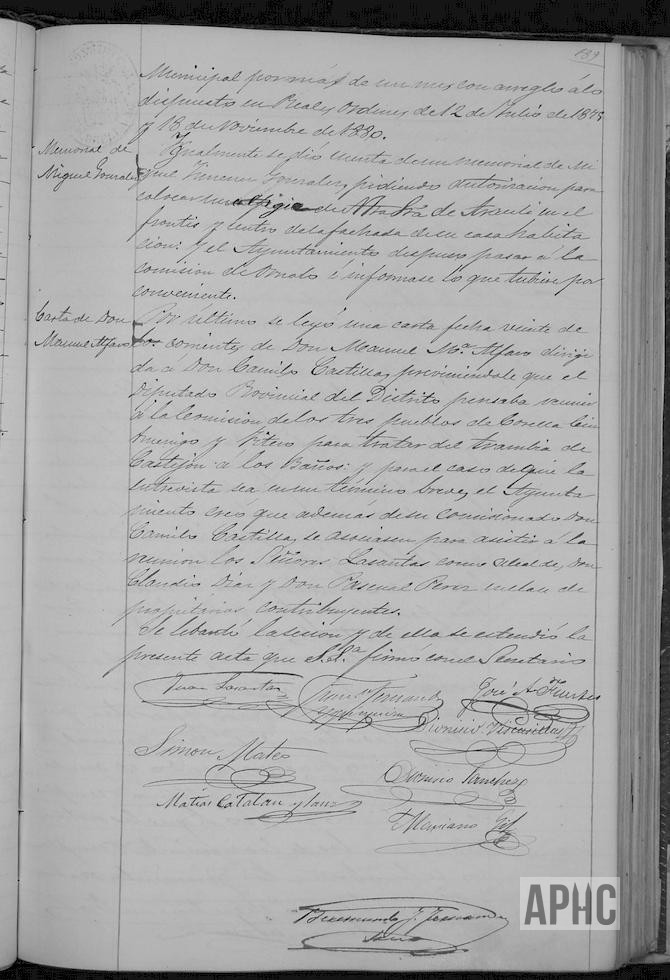 139
Municipal por más de un mes con arreglo á lo
dispuesto en Reales Ordenes de 12 de Julio de 1875
y 18 de Noviembre de 1880.
Memorial de
Miguel Gonzalez
Ygualmente se dió cuenta de un memorial de Mi
guel Gonzalez, pidiendo autorizacion para
colocar una efigie de Ntra Sra de Araceli en el
frontis y centro de la fachada de su casa habita
cion: y el Ayuntamiento dispuso pasar á la
comision de Ornato é informase lo que tubiere por
conveniente.
Carta de Don
Manuel Alfaro
Por último se leyó una carta fecha veinte de
corriente, de Don Manuel Mª Alfaro dirigi
da a Don Camilo Castilla, previniendole que el
Diputado Provincial del Distrito pensaba reunir
á la Comision de los tres pueblos de Corella Cin
truenigo y Fitero para tratar del trambia de
Castejón á los Baños: y para el caso de que la
entrevista sea en un término breve, el Ayunta
miento creo que además de su comisionado Don
Camilo Castilla, se asociasen para asistir á la
reunion los Señores Lasantas como alcalde, Don
Claudio Diaz y Don Pascual Perez en clase de
propietarios contribuyentes.
Se lebantó la sesion y de ella se estendió la
presente acta que S.Sª firmó con el Secretario
Juan Lasantas
José A Fuertes
Dionisio Viscasillas
Simon Mateo
Dionisio Sanchez
Matias Catalan y Sanz
Mariano Gil
Bermundo J. Fernandez
APHC